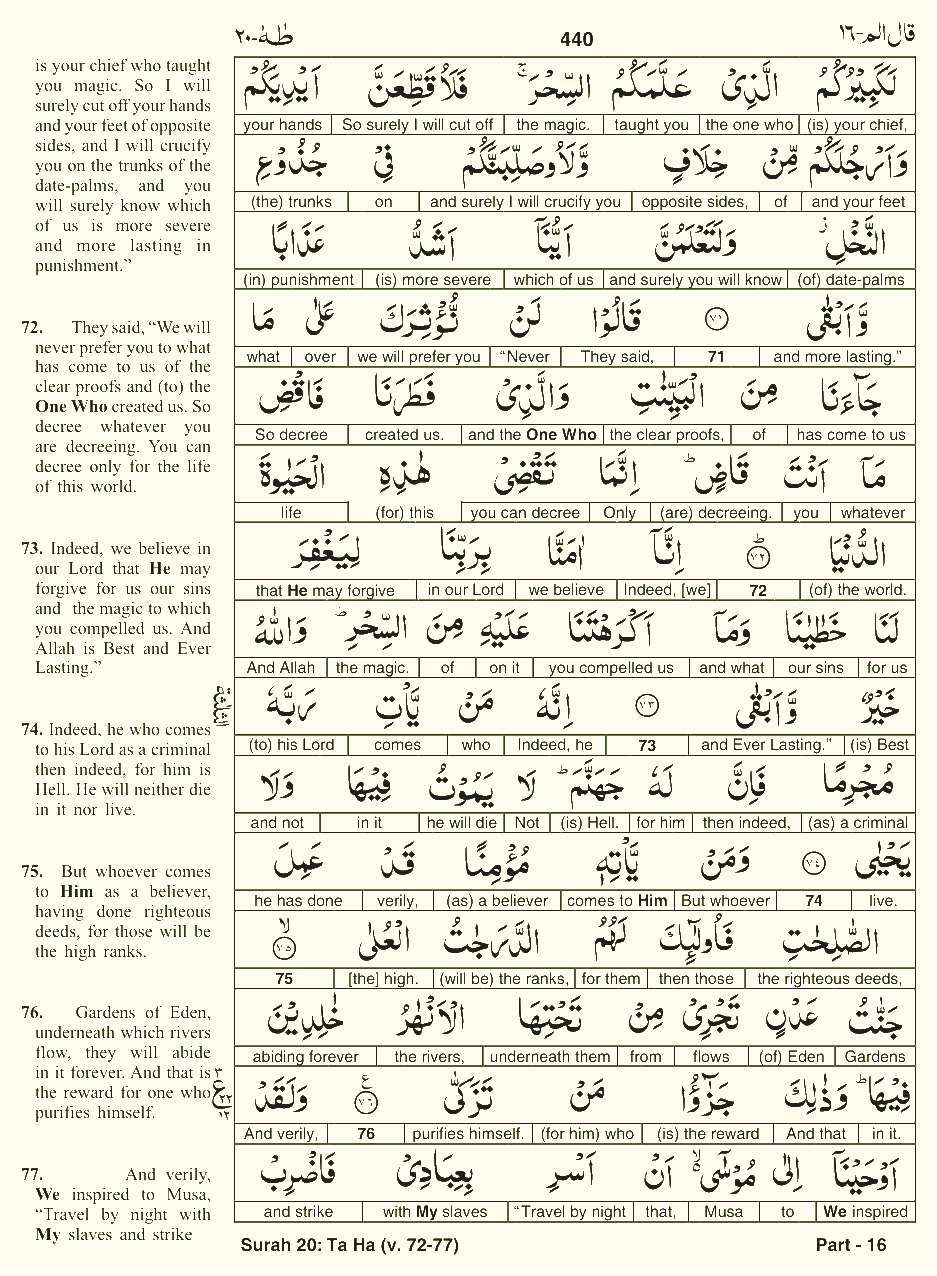 طٰهٰ-٢٠
440
قال الم-١٦
is your chief who taught
you magic. So I will
surely cut off your hands
and your feet of opposite
sides, and I will crucify
you on the trunks of the
date-palms, and you
will surely know which
of us is more severe
and more lasting in
punishment.”
72. They said, “We will
never prefer you to what
has come to us of the
clear proofs and (to) the
One Who created us. So
decree whatever you
are decreeing. You can
decree only for the life
of this world.
73. Indeed, we believe in
our Lord that He may
forgive for us our sins
and the magic to which
you compelled us. And
Allah is Best and Ever
Lasting.”
74. Indeed, he who comes
to his Lord as a criminal
then indeed, for him is
Hell. He will neither die
in it nor live.
75. But whoever comes
to Him as a believer,
having done righteous
deeds, for those will be
the high ranks.
76. Gardens of Eden,
underneath which rivers
flow, they will abide
in it forever. And that is
the reward for one who
purifies himself.
77. And verily,
We inspired to Musa,
“Travel by night with
My slaves and strike
لَكَبِيْرُكُمُ الَّذِيْ عَلَّمَكُمُ السِّحْرَ ۚ فَلَاُقَطِّعَنَّ اَيْدِيَكُمْ
your hands | So surely I will cut off | the magic. | taught you | the one who | (is) your chief,
وَاَرْجُلَكُمْ مِّنْ خِلَافٍ وَّلَاُوصَلِّبَنَّكُمْ فِيْ جُذُوْعِ
(the) trunks | on | and surely I will crucify you | opposite sides, | of | and your feet
النَّخْلِ ۫ وَلَتَعْلَمُنَّ اَيُّنَآ اَشَدُّ عَذَابًا
(in) punishment | (is) more severe | which of us | and surely you will know | (of) date-palms
وَّاَبْقٰى ٧١ قَالُوْا لَنْ نُّؤْثِرَكَ عَلٰى مَا
what | over | we will prefer you | “Never | They said, | 71 | and more lasting.”
جَآءَنَا مِنَ الْبَيِّنٰتِ وَالَّذِيْ فَطَرَنَا فَاقْضِ
So decree | created us. | and the One Who | the clear proofs, | of | has come to us
مَآ اَنْتَ قَاضٍ ؕ اِنَّمَا تَقْضِيْ هٰذِهِ الْحَيٰوةَ
life | (for) this | you can decree | Only | (are) decreeing. | you | whatever
الدُّنْيَا ؕ ٧٢ اِنَّآ اٰمَنَّا بِرَبِّنَا لِيَغْفِرَ
that He may forgive | in our Lord | we believe | Indeed, [we] | 72 | (of) the world.
لَنَا خَطٰيٰنَا وَمَآ اَكْرَهْتَنَا عَلَيْهِ مِنَ السِّحْرِ ؕ وَاللّٰهُ
And Allah | the magic. | of | on it | you compelled us | and what | our sins | for us
خَيْرٌ وَّاَبْقٰى ٧٣ اِنَّهٗ مَنْ يَّاْتِ رَبَّهٗ
الثلثة
(to) his Lord | comes | who | Indeed, he | 73 | and Ever Lasting.” | (is) Best
مُجْرِمًا فَاِنَّ لَهٗ جَهَنَّمَ ؕ لَا يَمُوْتُ فِيْهَا وَلَا
and not | in it | he will die | Not | (is) Hell. | for him | then indeed, | (as) a criminal
يَحْيٰى ٧٤ وَمَنْ يَّاْتِهٖ مُؤْمِنًا قَدْ عَمِلَ
he has done | verily, | (as) a believer | comes to Him | But whoever | 74 | live.
الصّٰلِحٰتِ فَاُولٰٓئِكَ لَهُمُ الدَّرَجٰتُ الْعُلٰى ۙ ٧٥
75 | [the] high. | (will be) the ranks, | for them | then those | the righteous deeds,
جَنّٰتُ عَدْنٍ تَجْرِيْ مِنْ تَحْتِهَا الْاَنْهٰرُ خٰلِدِيْنَ
abiding forever | the rivers, | underneath them | from | flows | (of) Eden | Gardens
فِيْهَا ؕ وَذٰلِكَ جَزٰٓؤُا مَنْ تَزَكّٰى ٧٦ وَلَقَدْ
٣ ع ٢٢ ١٢
And verily, | 76 | purifies himself. | (for him) who | (is) the reward | And that | in it.
اَوْحَيْنَآ اِلٰى مُوْسٰٓى ۙ اَنْ اَسْرِ بِعِبَادِيْ فَاضْرِبْ
and strike | with My slaves | “Travel by night | that, | Musa | to | We inspired
Surah 20: Ta Ha (v. 72-77)
Part - 16